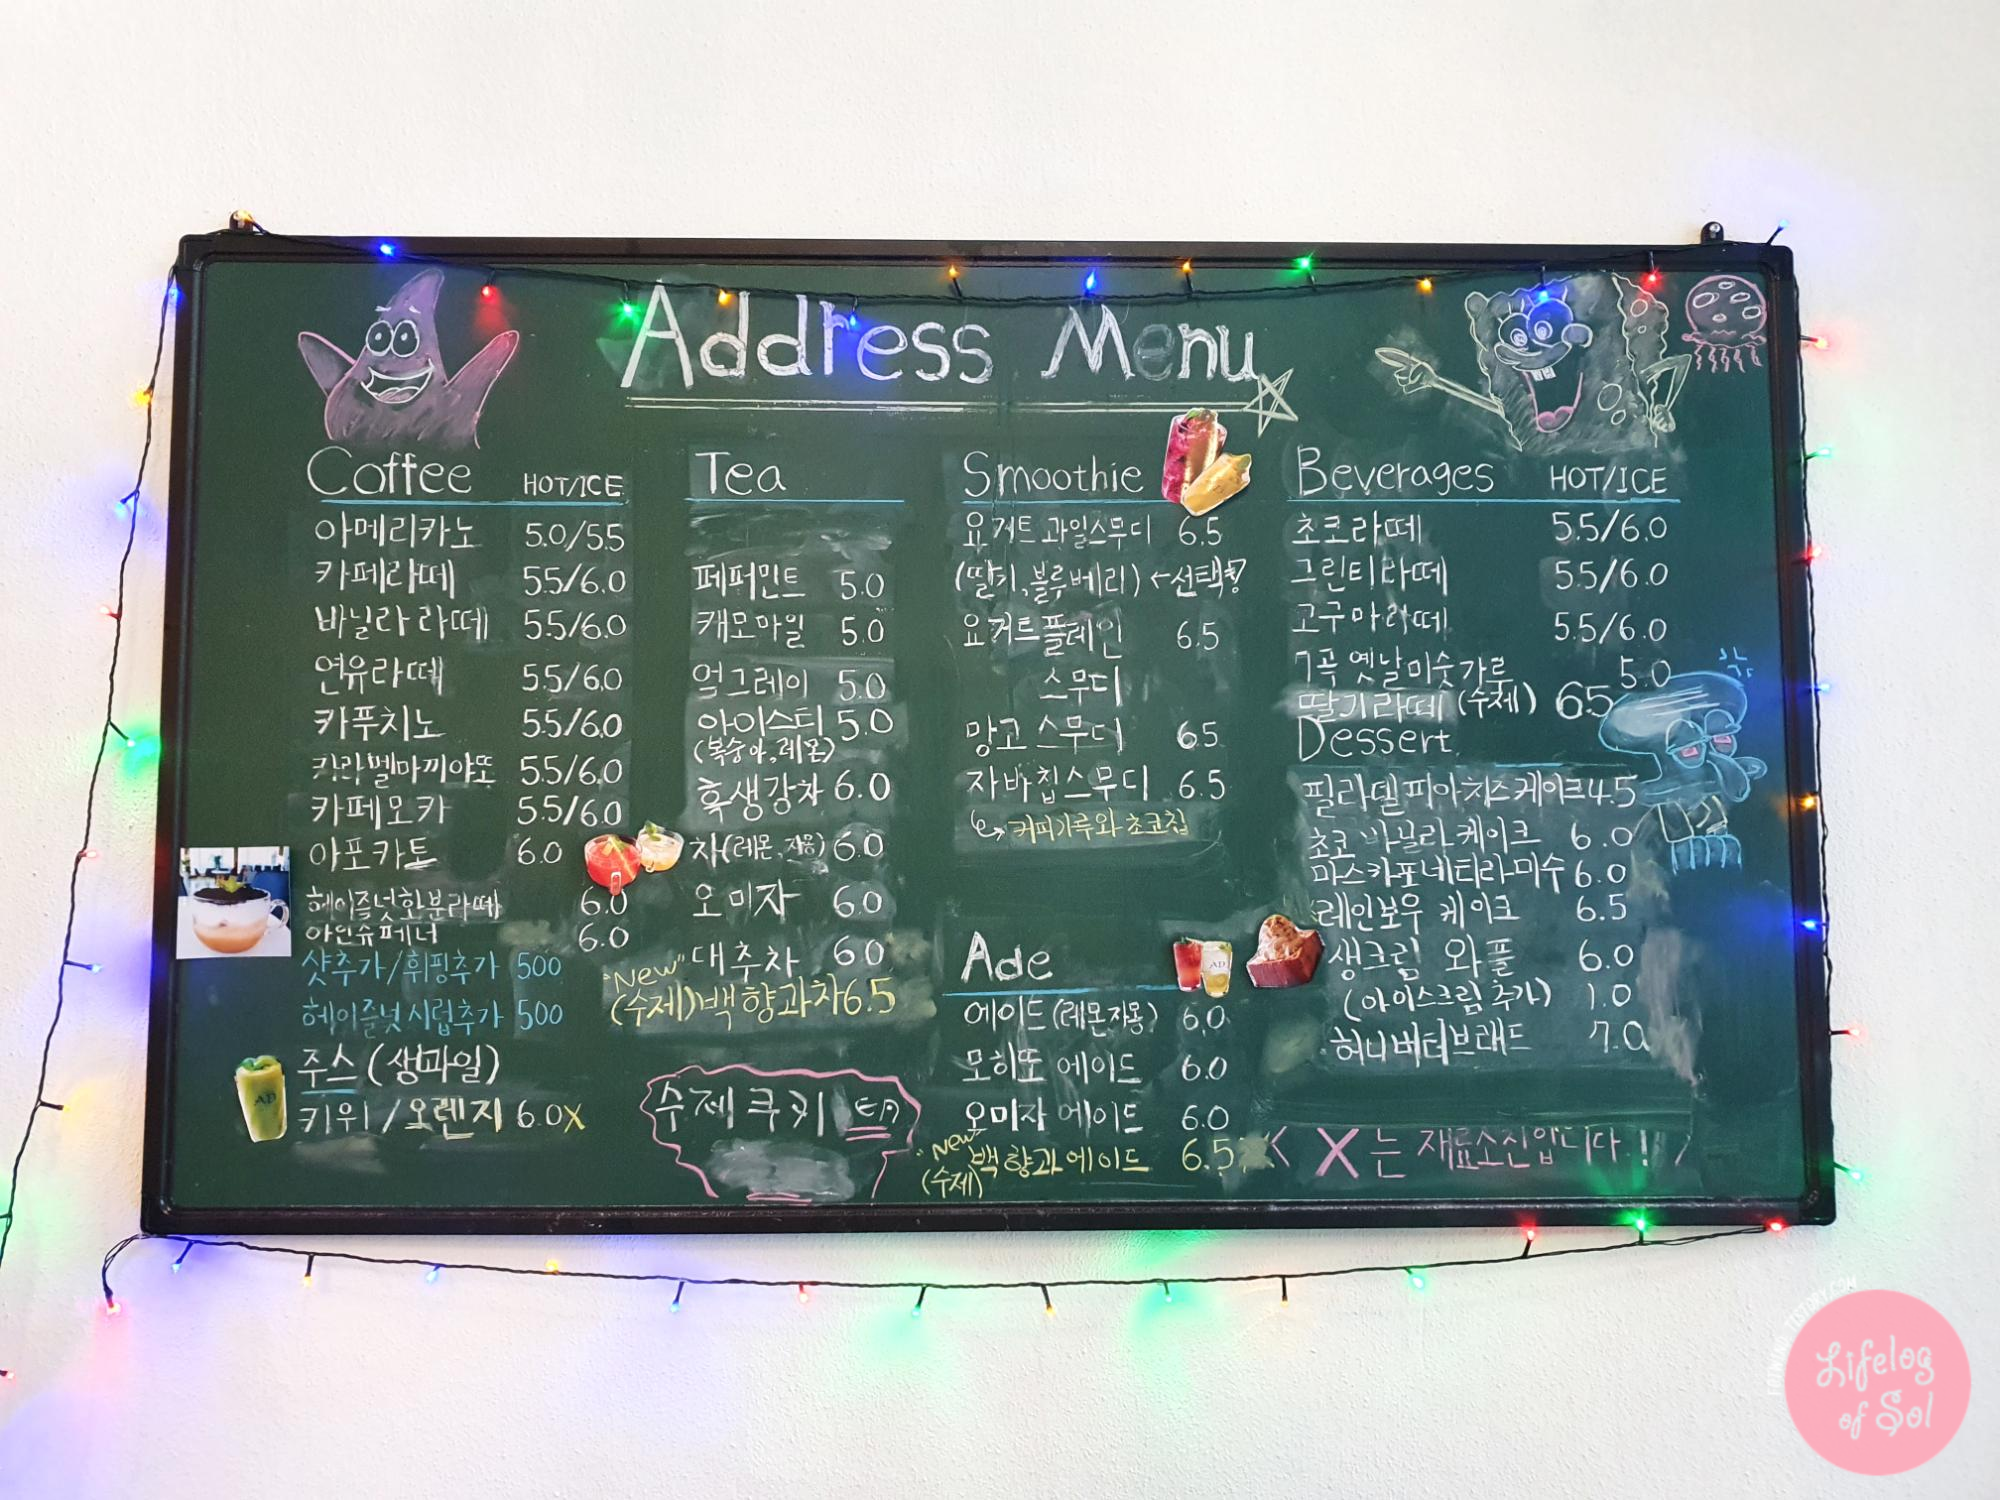 Address Menu
Coffee HOT/ICE
아메리카노 5.0/5.5
카페라떼 5.5/6.0
바닐라 라떼 5.5/6.0
연유라떼 5.5/6.0
카푸치노 5.5/6.0
카라멜마끼야또 5.5/6.0
카페모카 5.5/6.0
아포카토 6.0
헤이즐넛한분라떼 6.0
아인슈페너 6.0
샷추가/휘핑추가 500
헤이즐넛시럽추가 500
주스 (생과일)
키위/오렌지 6.0X
Tea
페퍼민트 5.0
캐모마일 5.0
얼그레이 5.0
아이스티 5.0
(복숭아,레몬)
흑생강차 6.0
차(레몬,자몽) 6.0
오미자 6.0
대추차 6.0
"New"
(수제)백향과차6.5
수제쿠키
Smoothie
요거트과일스무디 6.5
(딸기,블루베리) ←선택!
요거트플레인 6.5
스무디
망고 스무디 6.5
자바칩스무디 6.5
커피가루와 초코칩
Ade
AD
에이드(레몬자몽) 6.0
모히또 에이드 6.0
오미자 에이드 6.0
"New"
백향과에이드 6.5
(수제)
Beverages HOT/ICE
초코라떼 5.5/6.0
그린티라떼 5.5/6.0
고구마라떼 5.5/6.0
7곡 옛날미숫가루 5.0
딸기라떼 (수제) 6.5
Dessert
필라델피아치즈케이크4.5
초코 바닐라케이크 6.0
마스카포네티라미수 6.0
레인보우 케이크 6.5
생크림 와플 6.0
(아이스크림 추가) 1.0
허니버터브래드 7.0
X는 재료소진입니다!
AD
Lifelog
of Sol